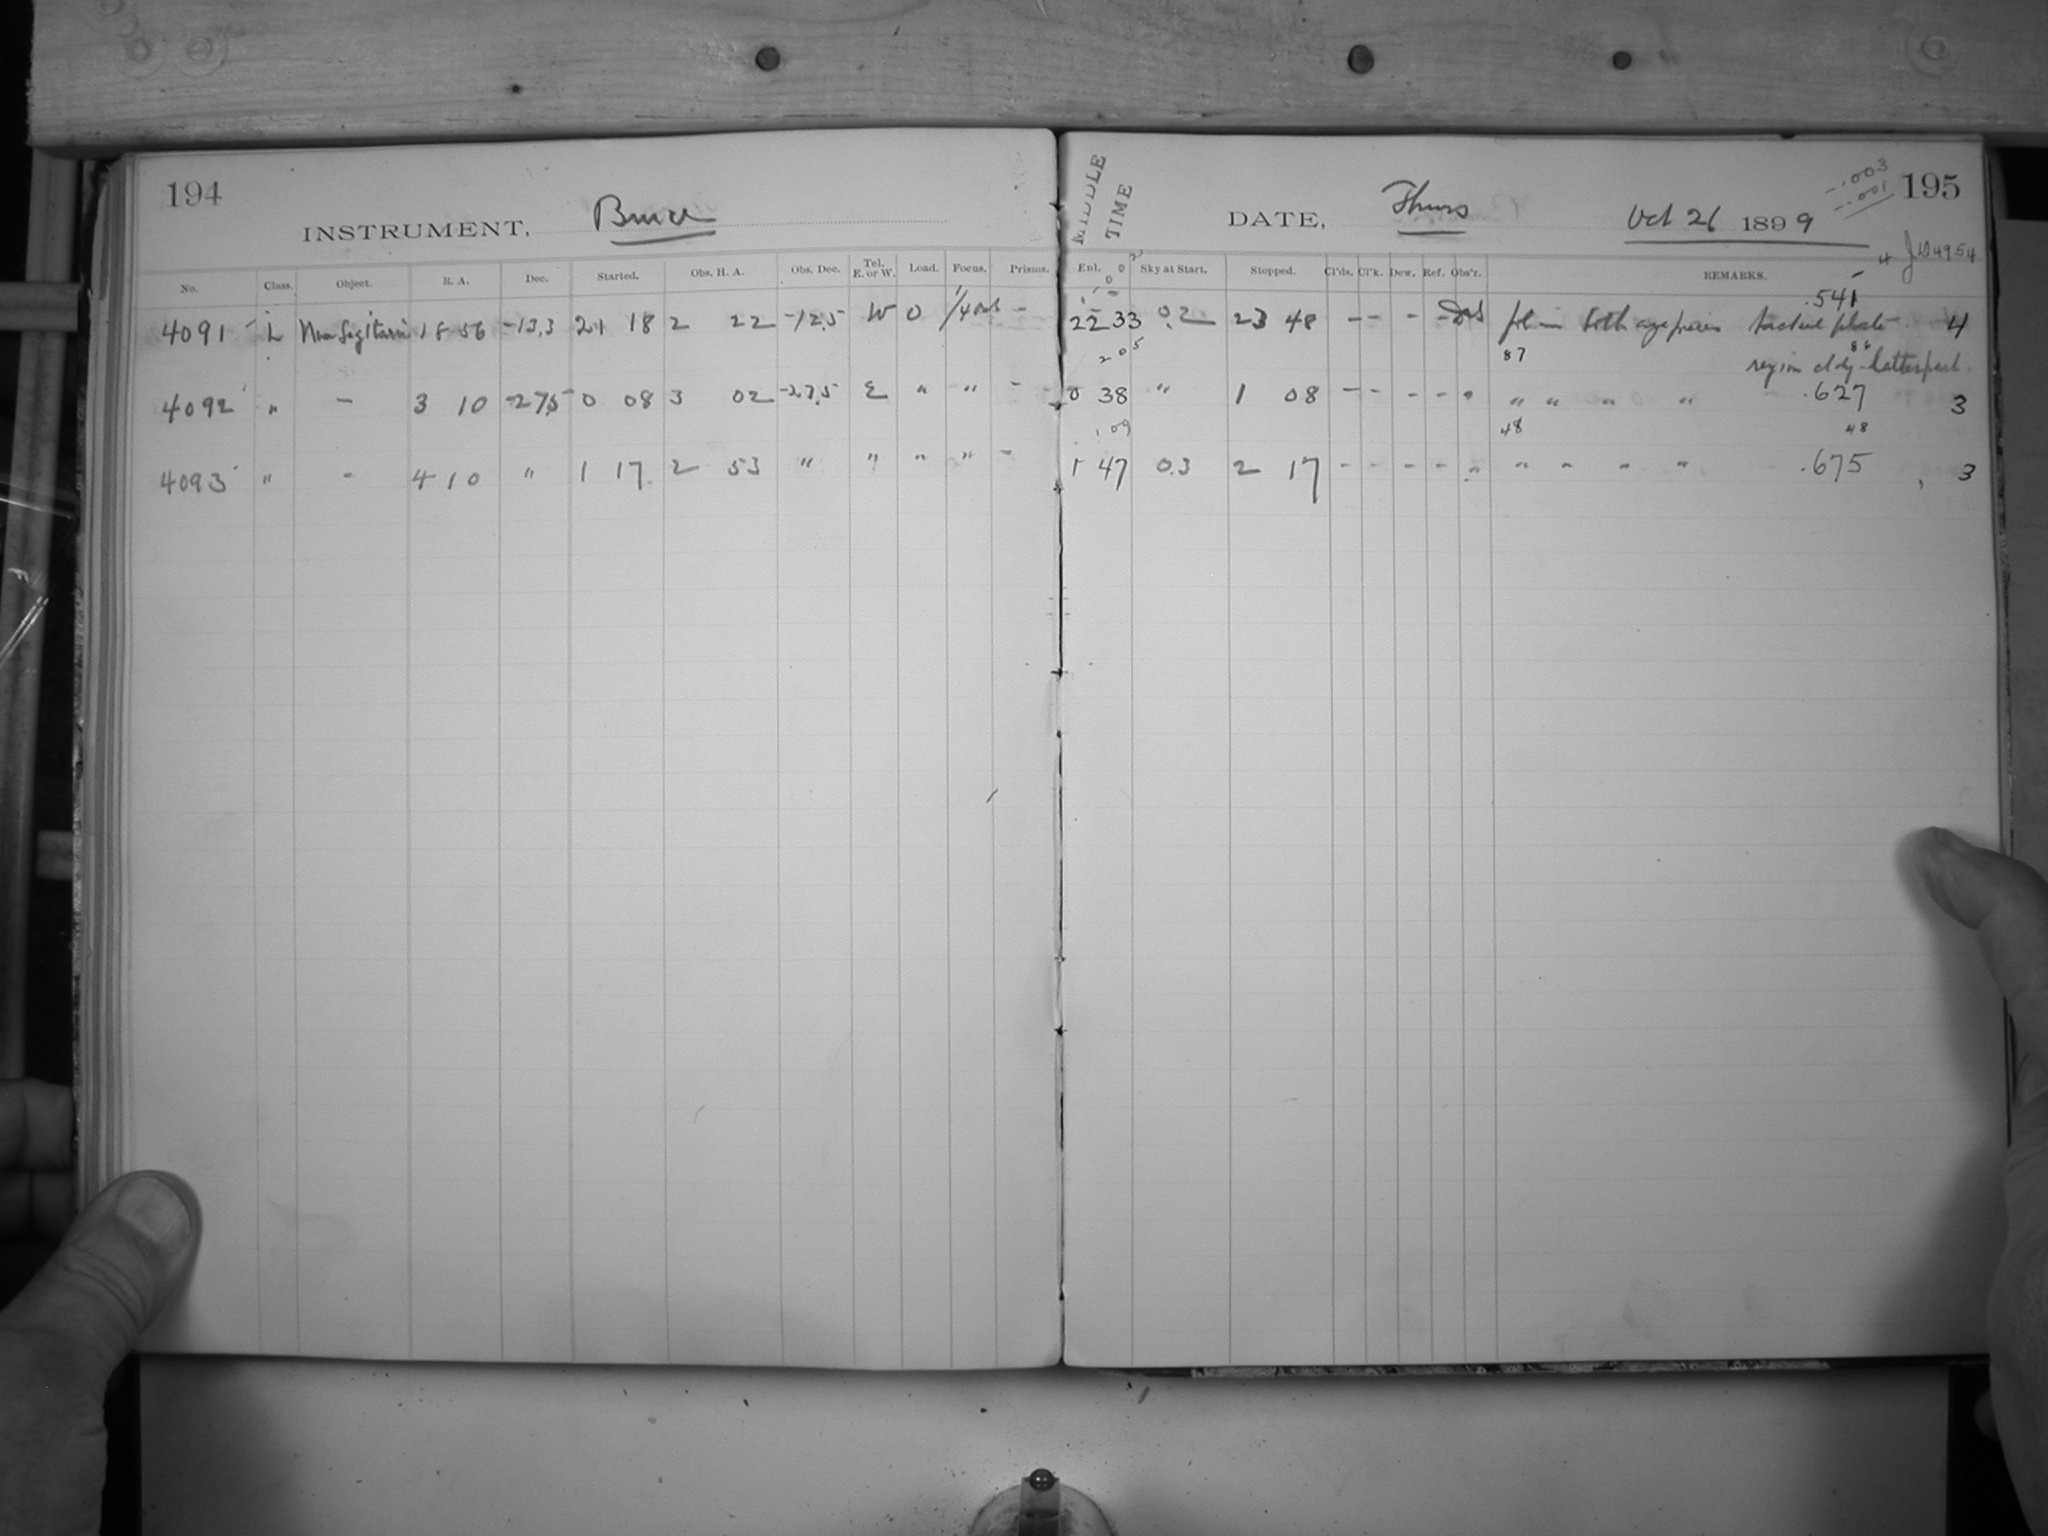 194
INSTRUMENT, Bruce
No. Class. Object. R. A. Dec. Started. Obs. H. A. Obs. Dec. Tel. E. or W. Load. Focus. Prisms.
4091 L Nova Sagittarii 18 56 -13.3 21 18 2 22 -12.5 W 0 -
4092 " - 3 10 -27.5 0 08 3 02 -27.5 E " " -
4093 " - 4 10 " 1 17 2 53 " " " " -
195
-.003
-.001
MIDDLE TIME
DATE, Thurs Oct 26 1899
JD 4954
Enl. Sky at Start. Stopped. Cl'ds. Cl'k. Dew. Ref. Obs'r. REMARKS.
.541
22 33 0.2 23 48 - - - - plate 4
2 05 87 86
region cldy latter part.
0 38 " 1 08 - - - - " " " " " .627 3
1 09 48 48
1 47 0.3 2 17 - - - - " " " " " .675 3